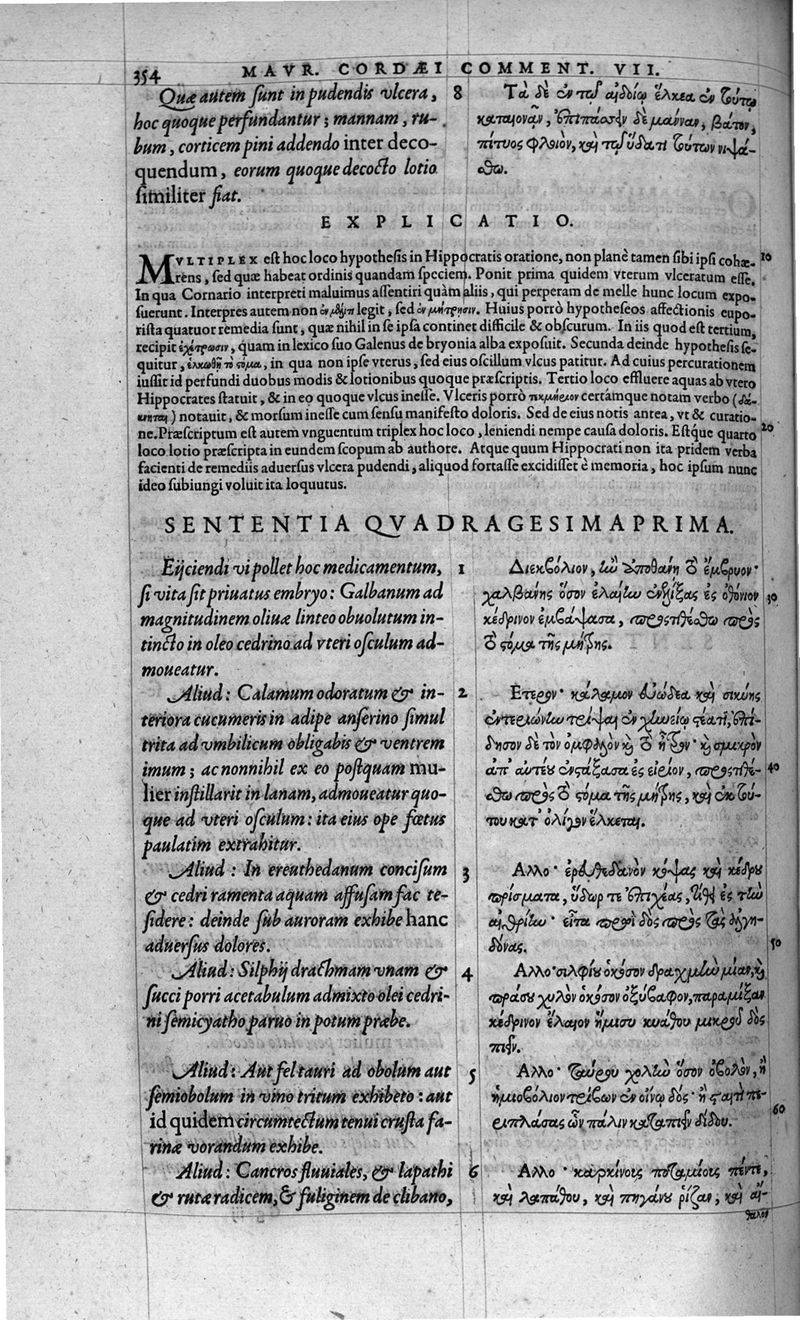 354 MAVR. CORDÆI COMMENT. VII.
Quæ autem sunt in pudendis vlcera,
hoc quoque perfundantur; mannam, ru-
bum, corticem pini addendo inter deco-
quendum, eorum quoque decocto lotio
similiter fiat.
8 Τὰ δὲ ἐν τῷ αἰδοίῳ ἕλκεα ἐν τούτῳ
καταιονᾷν, ἐπιπάσσειν δὲ μάνναν, βάτον,
πίτυος φλοιὸν, καὶ τῷ ὕδατι τούτων νιψά-
σθω.
EXPLICATIO.
MVLTIPLEX est hoc loco hypothesis in Hippocratis oratione, non planè tamen sibi ipsi cohæ- 10
rens, sed quæ habeat ordinis quandam speciem. Ponit prima quidem vterum vlceratum esse.
In qua Cornario interpreti maluimus assentiri quàm aliis, qui perperam de melle hunc locum expo-
suerunt. Interpres autem non legit, sed ἐν μήτρῃσιν. Huius porrò hypotheseos affectionis eupo-
rista quatuor remedia sunt, quæ nihil in se ipsa continet difficile & obscurum. In iis quod est tertium,
recipit ἐχέτρωσιν, quam in lexico suo Galenus de bryonia alba exposuit. Secunda deinde hypothesis se-
quitur, ἑλκωθῇ τὸ στόμα, in qua non ipse vterus, sed eius oscillum vlcus patitur. Ad cuius percurationem
iussit id perfundi duobus modis & lotionibus quoque præscriptis. Tertio loco effluere aquas ab vtero
Hippocrates statuit, & in eo quoque vlcus inesse. Vlceris porrò certámque notam verbo (δά-
κνηται) notauit, & morsum inesse cum sensu manifesto doloris. Sed de eius notis antea, vt & curatio-
ne. Præscriptum est autem vnguentum triplex hoc loco, leniendi nempe causa doloris. Estque quarto 20
loco lotio præscripta in eundem scopum ab authore. Atque quum Hippocrati non ita pridem verba
facienti de remediis aduersus vlcera pudendi, aliquod fortasse excidisset è memoria, hoc ipsum nunc
ideo subiungi voluit ita loquutus.
SENTENTIA QVADRAGESIMAPRIMA.
Eijciendi vi pollet hoc medicamentum,
si vita sit priuatus embryo: Galbanum ad
magnitudinem oliuæ linteo obuolutum in-
tincto in oleo cedrino ad vteri osculum ad-
moueatur.
1 Διεκβόλιον, ἢν ἀποθάνῃ τὸ ἔμβρυον·
χαλβάνης ὅσον ἐλαίην ἐνελίξας ἐς ὀθόνιον 30
κέδρινον ἐμβάψασα, προςτιθέσθω πρὸς
τὸ στόμα τῆς μήτρης.
Aliud: Calamum odoratum & in-
teriora cucumeris in adipe anserino simul
trita ad vmbilicum obligabis & ventrem
imum; ac nonnihil ex eo postquam mu-
lier instillarit in lanam, admoueatur quo-
que ad vteri osculum: ita eius ope fœtus
paulatim extrahitur.
2 Ετερον· κάλαμον εὐώδεα καὶ σικύης
ἐντεριώνην τρίψαι ἐν χηνείῳ στέατι, ἐπι-
δησον δὲ τὸν ὀμφαλὸν καὶ τὸ ἦτρον· καὶ σμικρὸν
ἀπ' αὐτέου ἐνστάξασα ἐς εἴριον, προςτιθέ- 40
σθω πρὸς τὸ στόμα τῆς μήτρης, καὶ ἐκ τού-
του κατ' ὀλίγον ἕλκεται.
Aliud: In ereuthedanum concisum
& cedri ramenta aquam affusam fac re-
sidere: deinde sub auroram exhibe hanc
aduersus dolores.
3 Αλλο· ἐρευθεδανὸν κόψας καὶ κέδρου
πρίσματα, ὕδωρ τε ἐπιχέας, τιθεὶ ἐς τὴν
αἰθρίην· εἶτα πρωῒ δὸς πρὸς τὰς ἀλγη-
δόνας. 50
Aliud: Silphij drachmam vnam &
succi porri acetabulum admixto olei cedri-
ni semicyatho paruo in potum præbe.
4 Αλλο· σιλφίου ὁκόσον δραχμὴν μίαν, καὶ
πράσου χυλὸν ὁκόσον ὀξύβαφον, παραμίξαι
κέδρινον ἔλαιον ἥμισυ κυάθου μικροῦ δὸς
πιεῖν.
Aliud: Aut fel tauri ad obolum aut
semiobolum in vino tritum exhibeto: aut
id quidem circumtectum tenui crusta fa-
rinæ vorandum exhibe.
5 Αλλο· ταύρου χολὴν ὅσον ὀβολὸν, ἢ
ἡμιοβόλιον τρίβων ἐν οἴνῳ δὸς· ἢ σταιτὶ πε- 60
ριπλάσας ὧν πάλιν καταπιεῖν δίδου.
Aliud: Cancros fluuiales, & lapathi
& rutæ radicem, & fuliginem de clibano,
6 Αλλο· καρκίνους ποταμίους πέντε,
καὶ λαπάθου, καὶ πηγάνου ῥίζαν, καὶ αἰ-
θάλην